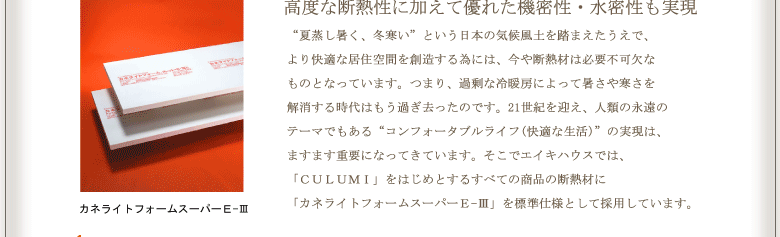 高度な断熱性に加えて優れた機密性・水密性も実現
“夏蒸し暑く、冬寒い”という日本の気候風土を踏まえたうえで、
より快適な居住空間を創造する為には、今や断熱材は必要不可欠な
ものとなっています。つまり、過剰な冷暖房によって暑さや寒さを
解消する時代はもう過ぎ去ったのです。21世紀を迎え、人類の永遠の
テーマでもある“コンフォータブルライフ(快適な生活)”の実現は、
ますます重要になってきています。そこでエイキハウスでは、
「ＣＵＬＵＭＩ」をはじめとするすべての商品の断熱材に
「カネライトフォームスーパーＥ−Ⅲ」を標準仕様として採用しています。
カネライトフォームスーパーＥ−Ⅲ